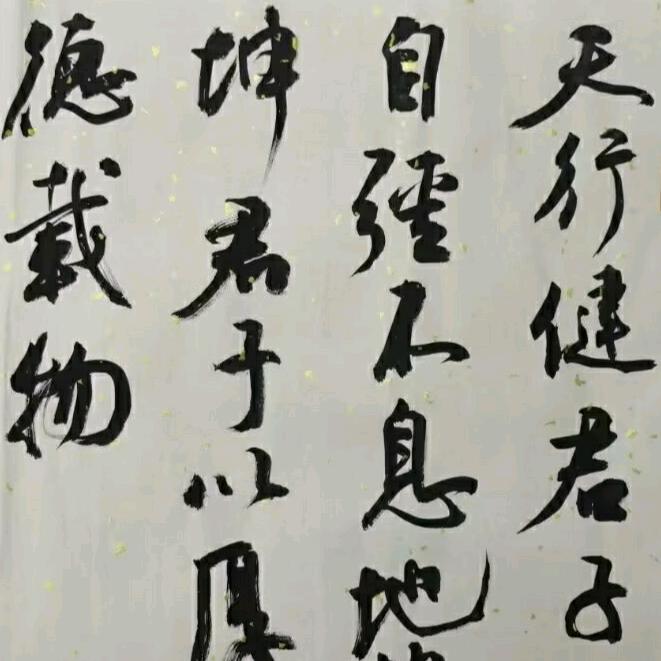 天行健君子
自强不息地
坤君子以厚
德載物